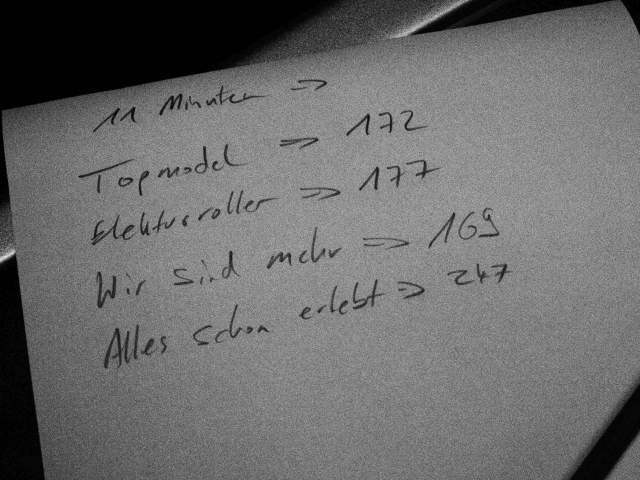 11 Minuten =>
Topmodel => 172
Elektroroller => 177
Wir sind mehr => 169
Alles schon erlebt => 247